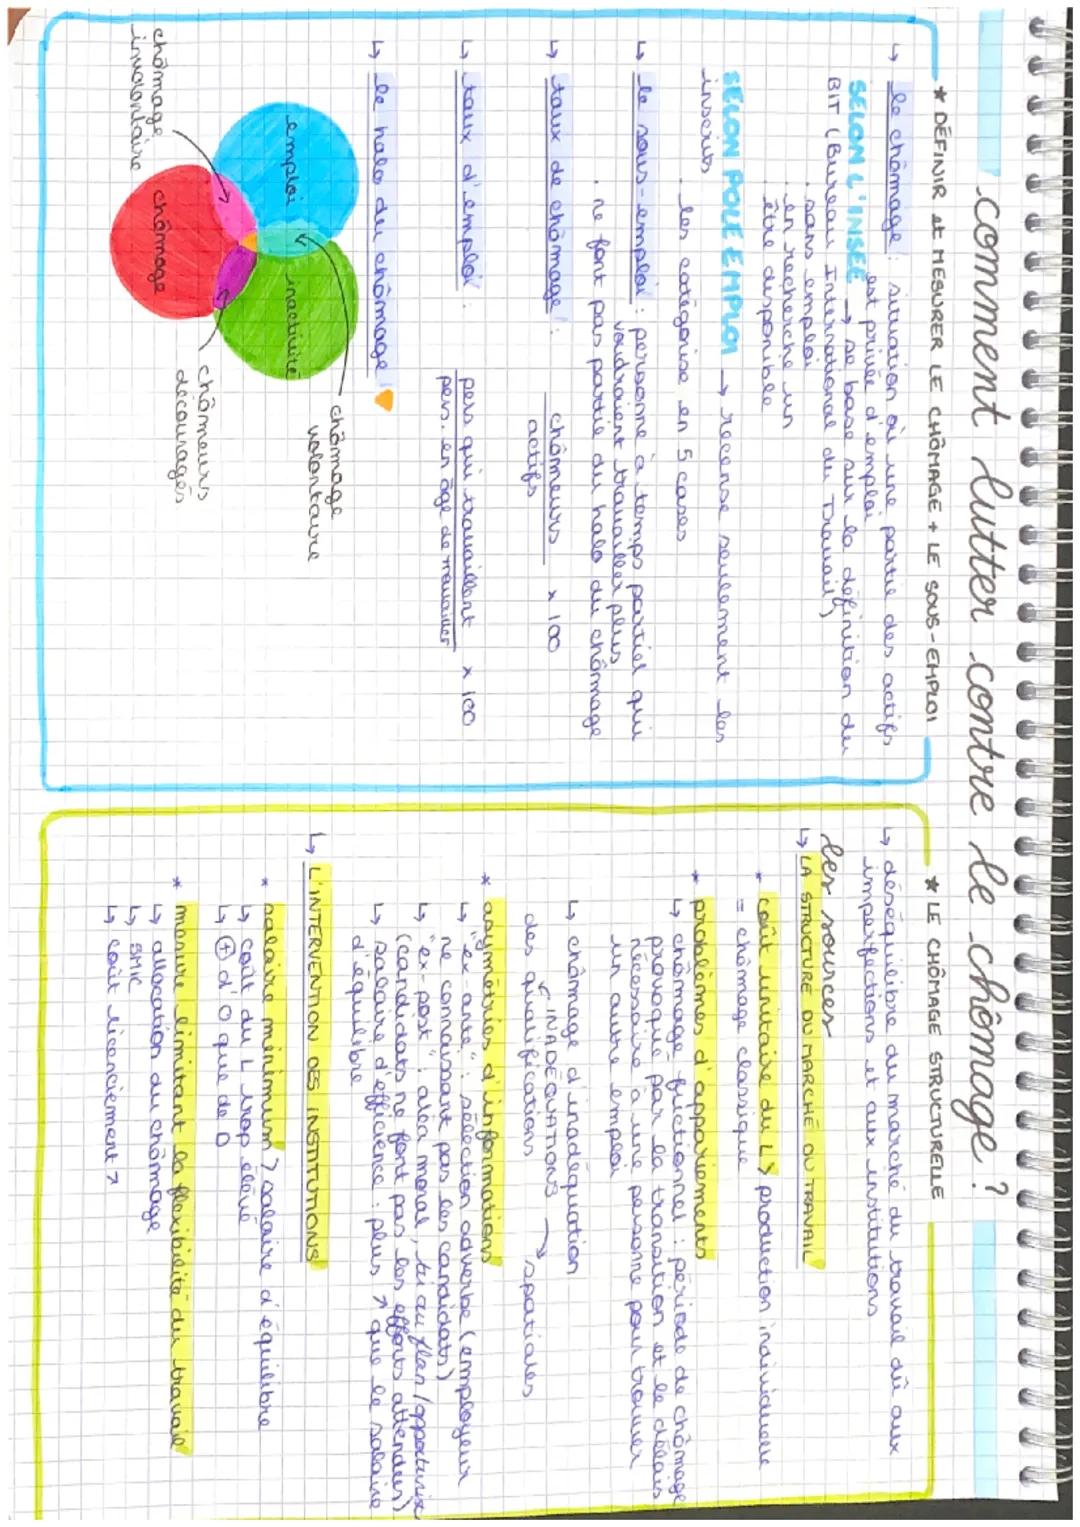 comment lutter contre le chômage ?
* DÉFINIR et MESURER LE CHÔMAGE + LE SOUS-EMPLOI
↳ le chômage : situation où une partie des actifs
est privée d'emploi
SELON L'INSEE → se base sur la définition du
BIT (Bureau International du Travail)
. sans emploi
. en recherche un
. être disponible
SELON POLE EMPLOI → recense seulement les
inscrits
. les catégorise en 5 cases
↳ le sous-emploi : personne à temps partiel qui
voudraient travailler plus
. ne font pas partie du halo du chômage
↳ taux de chômage : chômeurs x 100
actifs
↳ taux d'emploi : pers qui travaillent x 100
pers. en âge de travailler
↳ le halo du chômage
chômage
volontaire
emploi
inactivité
chômage
chômeurs
découragés
chômage
involontaire
* LE CHÔMAGE STRUCTURELLE
↳ déséquilibre du marché du travail dû aux
imperfections et aux institutions
les sources
↳ LA STRUCTURE DU MARCHÉ DU TRAVAIL
* coût unitaire du L > production individuelle
= chômage classique
* problèmes d'appariements
↳ chômage frictionnel : période de chômage
provoqué par la transition et le délais
nécessaire à une personne pour trouver
un autre emploi
↳ chômage d'inadéquation
INADEQUATIONS → spatiales
des qualifications
* asymétries d'informations
↳ "ex-ante" : sélection adverbe (employeur
ne connaissant pas les candidats)
↳ "ex-post" : aléa moral, tir au flan/opportuniste
(candidats ne font pas les efforts attendus)
↳ salaire d'efficience : plus ↗ que le salaire
d'équilibre
↳ L'INTERVENTION DES INSTITUTIONS
* salaire minimum > salaire d'équilibre
↳ coût du L trop élevé
↳ ⊕ d'O que de D
* mesure limitant la flexibilité du travail
↳ allocation du chômage
↳ SMIC
↳ coût licenciement ↗